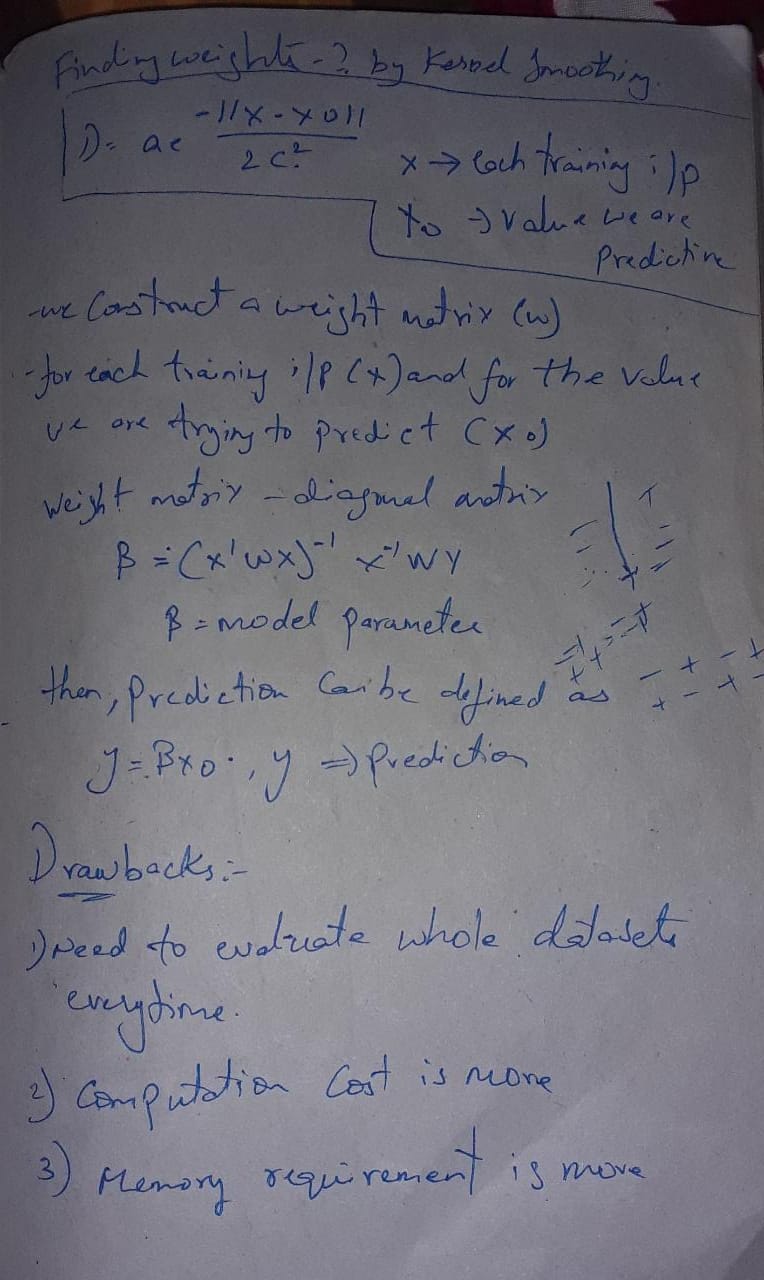 Finding weights-? by Kernel Smoothing.
D= ae -||x-x0||
2c²
x → each training i/p
x0 → value we are
Predictive
-we Construct a weight matrix (w)
-for each training i/p (x) and for the value
we are trying to predict (x0)
Weight matrix - diagonal matrix
β = (x'wx)⁻¹ x'WY
β = model parameter
then, prediction can be defined as
y = βx0 , y ⇒ prediction
Drawbacks:-
1) Need to evaluate whole datasets
everytime.
2) Computation Cost is more
3) Memory requirement is more